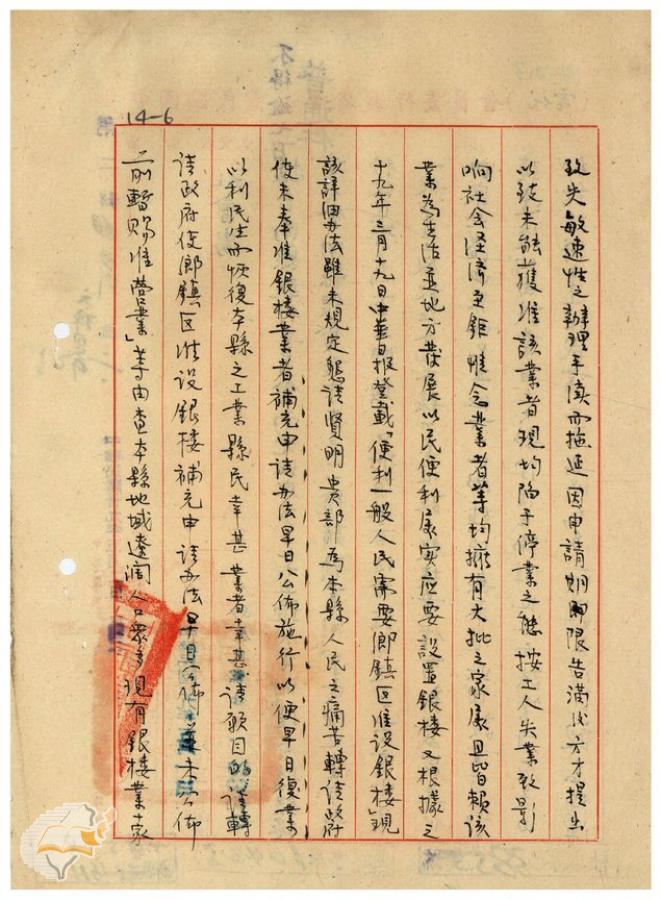 致失敏速性之辦理手續而拖延因申請期限告滿後方才提出
以致未能獲准該業者現均陷于停業之態按工人失業致影
响社会経済至鉅惟念業者等均擁有大批之家屬且皆賴該
業為生活並地方發展以民便利屬实应要設置銀楼又根據
十九年三月十九日中華日報登載「便利一般人民需要鄉鎮区准设銀楼」現
該詳细办法雖未規定懇请賢明 貴部為本縣人民之痛苦轉请政府
使未奉准銀楼業者補充申请办法早日公佈施行以便早日復業
以利民生而恢復本縣之工業縣民幸甚業者幸甚請願目的请轉
请政府使鄉鎮区准设銀楼補充申请办法早日公佈並未公佈
前暫賜准營業」等由查本縣地域遼闊人口眾多現有銀楼業十家
14-6